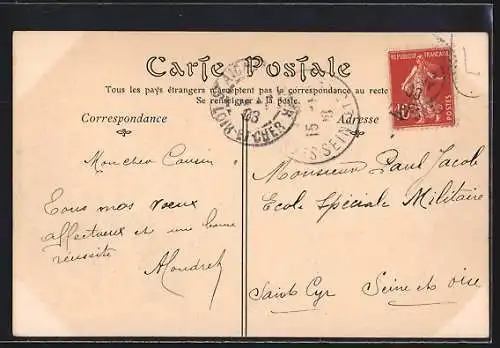 Carte Postale
Tous les pays étrangers n'acceptent pas la correspondance au recto
Se renseigner à la poste.
Correspondance
Adresse
REPUBLIQUE FRANÇAISE
10c
POSTES
LOIR-ET-CHER
08
15
Mon cher Cousin
Tous mes voeux
affectueux et une bonne
réussite
Monsieur Paul Jacob
Ecole Spéciale Militaire
Saint Cyr Seine et Oise